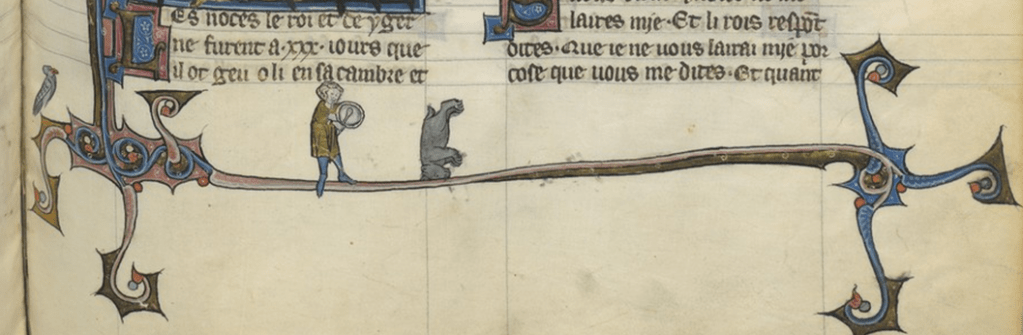 es noces le roi et de yger
ne furent a·xxx· iours que
il ot geu o li en sa cambre et
laires mie · Et li rois respōt
dites · Que ie ne uous lairai mie por
cose que uous me dites · Et quant